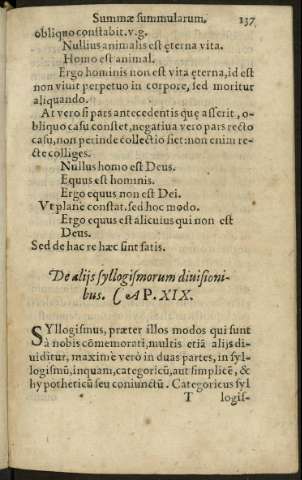 Summæ summularum. 137
obliquo constabit. v.g.
Nullius animalis est ęterna vita.
Homo est animal.
Ergo hominis non est vita ęterna, id est
non viuit perpetuo in corpore, sed moritur
aliquando.
At vero si pars antecedentis quę asserit, o-
bliquo casu constet, negatiua vero pars recto
casu, non perinde collectio fiet: non enim re-
cte colliges.
Nullus homo est Deus.
Equus est hominis.
Ergo equus non est Dei.
Vt plane constat. sed hoc modo.
Ergo equus est alicuius qui non est
Deus.
Sed de hac re hæc sint satis.
De alijs syllogismorum diuisioni-
bus. CAP. XIX.
SYllogismus, præter illos modos qui sunt
à nobis cõmemorati, multis etiã alijs di-
uiditur, maximè verò in duas partes, in syl-
logismũ, inquam, categoricũ, aut simplicẽ, &
hypotheticũ seu coniunctũ. Categoricus syl
T logis-